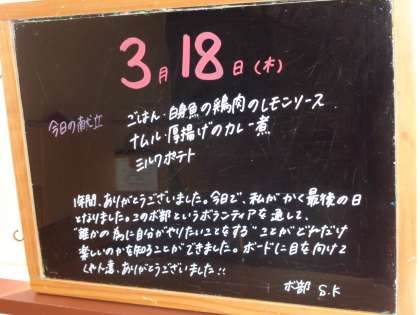 3月18日(木)
今日の献立
ごはん・白身魚の鶏肉のレモンソース
ナムル・厚揚げのカレー煮
ミルクポテト
1年間、ありがとうございました。今日で、私がかく最後の日
となりました。このボ部というボランティアを通して、
"誰かの為に自分がやりたいことをする"ことがどれだけ
楽しいのかを知ることができました。ボードに目を向けて
くれた事、ありがとうございました!!
ボ部 S.K